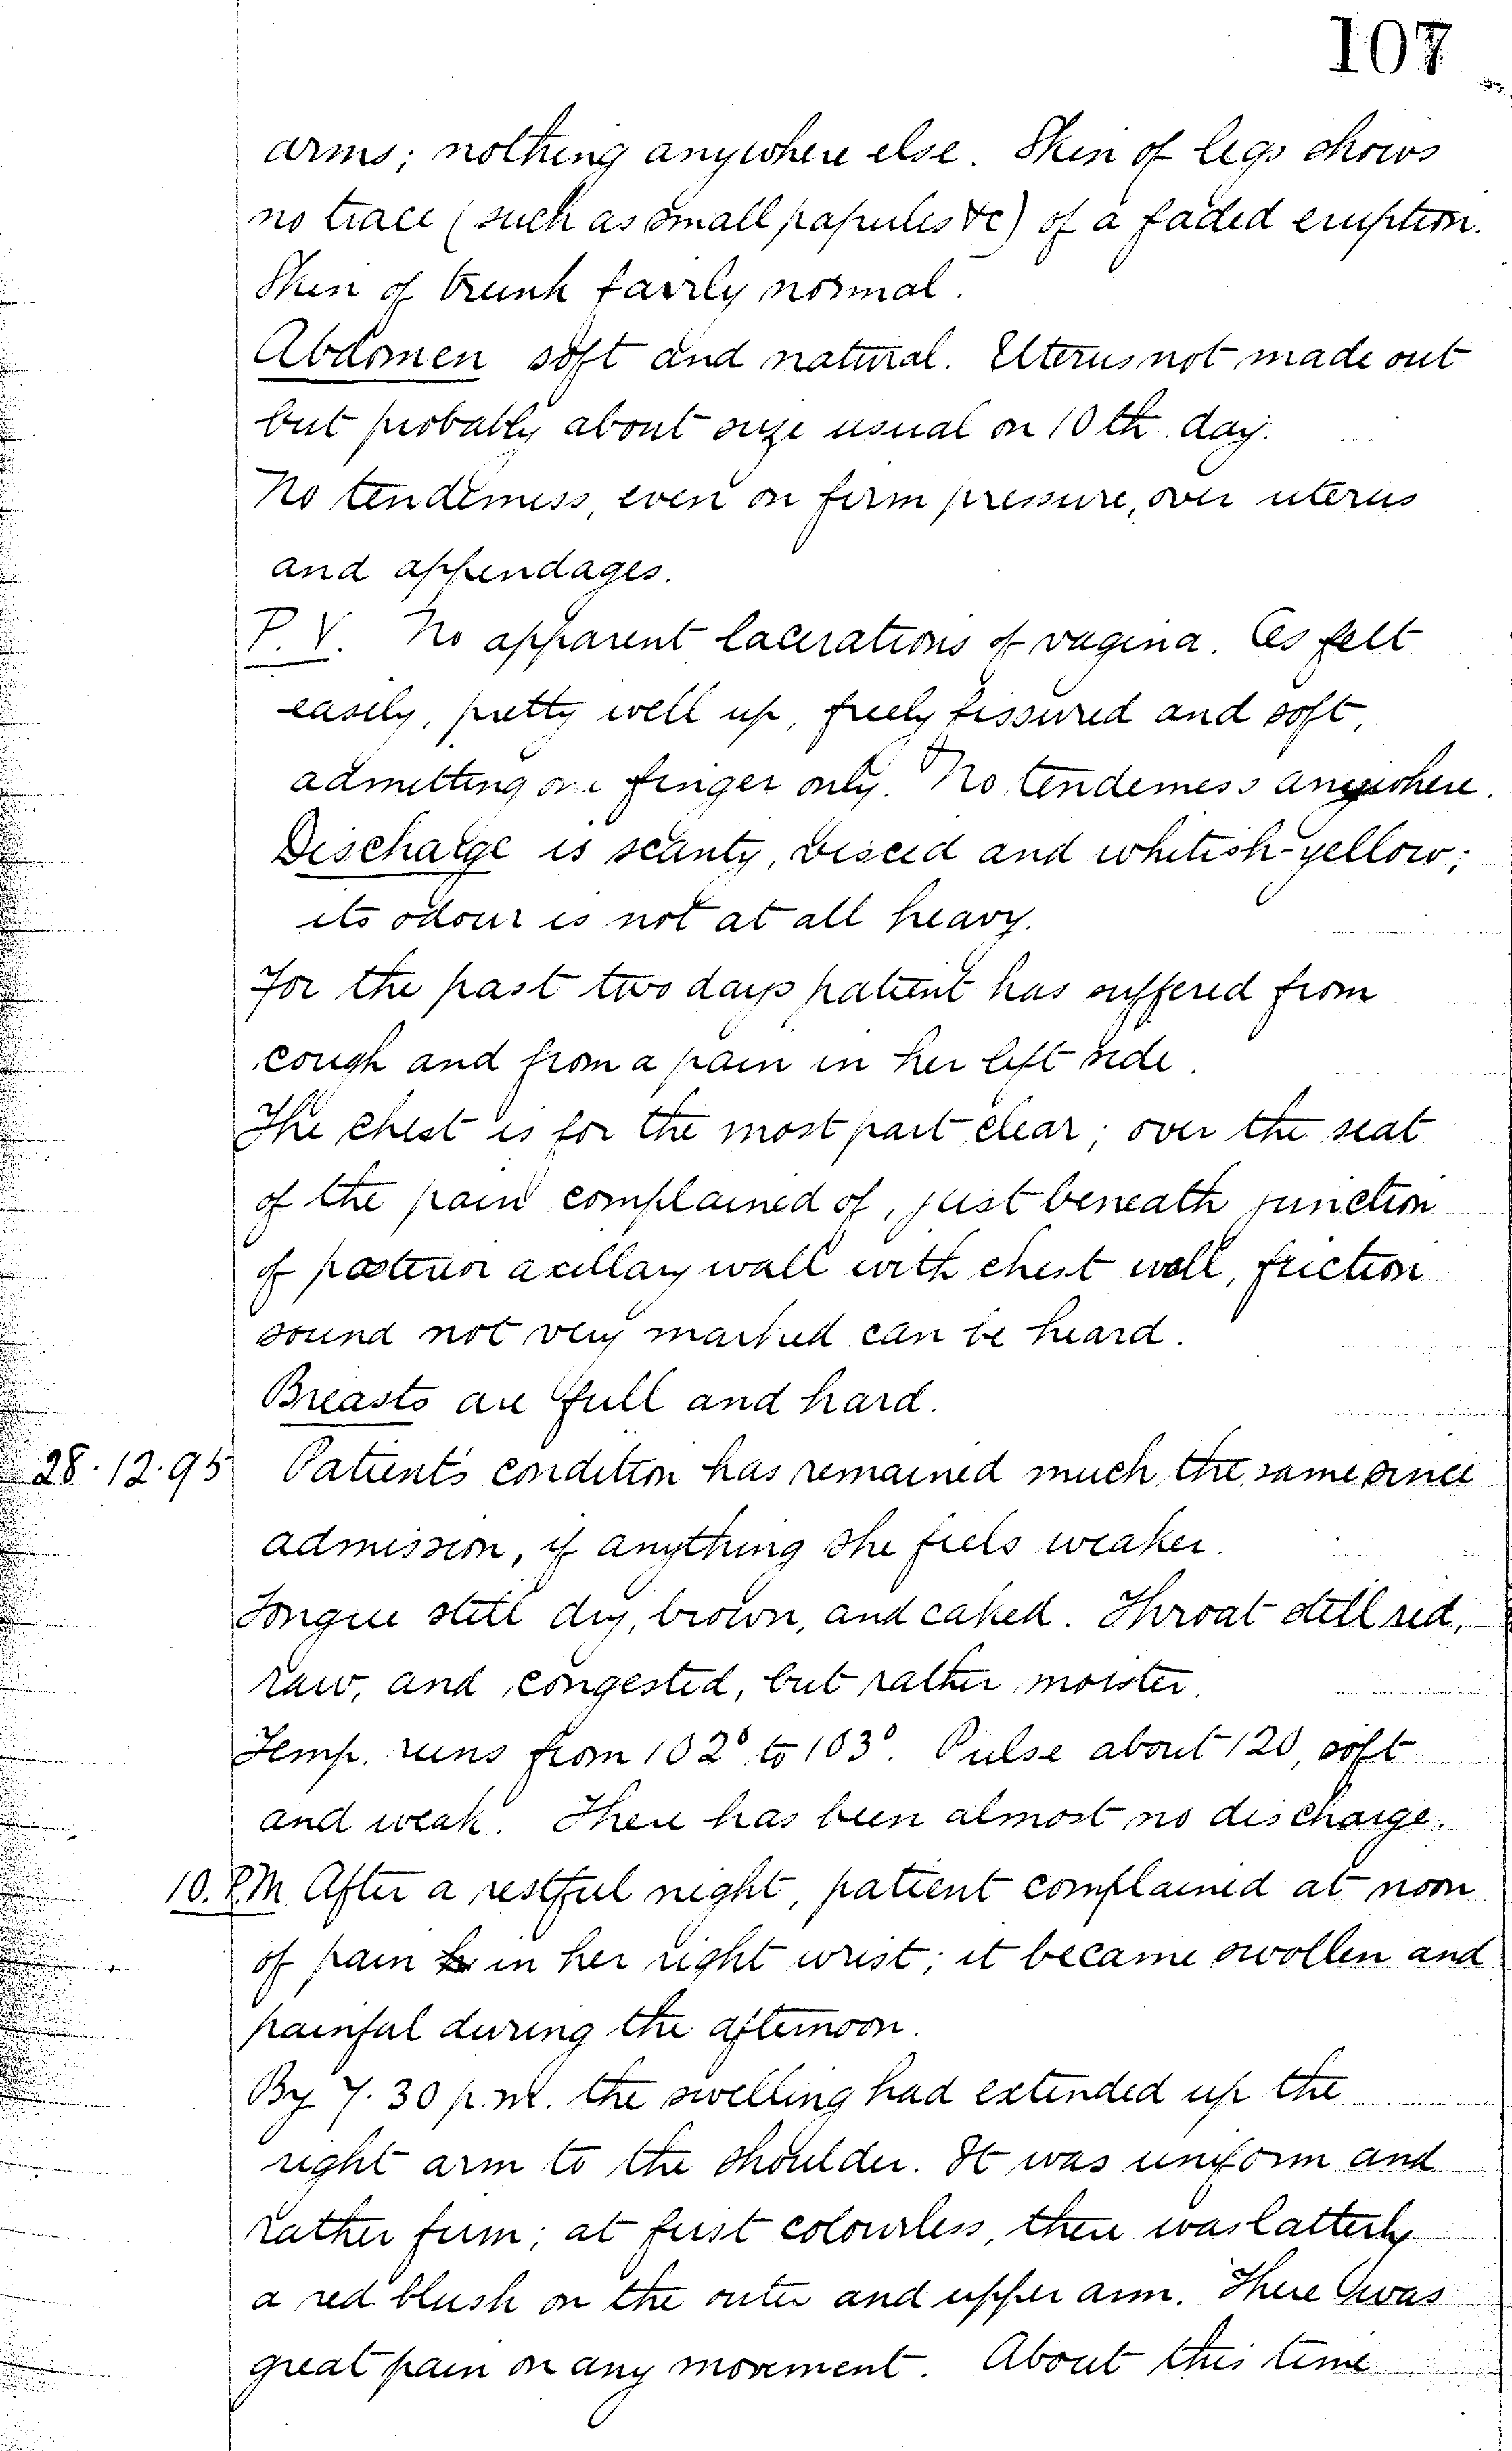 107
arms; nothing anywhere else. Skin of legs shows
no trace (such as small papules &c) of a faded eruption.
Skin of trunk fairly normal.
Abdomen soft and natural. Uterus not made out
but probably about size usual on 10th. day.
No tenderness, even on firm pressure, over uterus
and appendages.
P.V. No apparent lacerations of vagina. Os felt
easily, pretty well up, freely fissured and soft,
admitting one finger only. No tenderness anywhere.
Discharge is scanty, viscid and whitish-yellow;
its odour is not at all heavy.
For the past two days patient has suffered from
cough and from a pain in her left side.
The chest is for the most part clear; over the seat
of the pain complained of, just beneath junction
of posterior axillary wall with chest wall, friction
sound not very marked can be heard.
Breasts are full and hard.
28.12.95 Patient's condition has remained much the same since
admission, if anything she feels weaker.
Tongue still dry, brown, and caked. Throat still red,
raw, and congested, but rather moister.
Temp. runs from 102° to 103°. Pulse about 120, soft
and weak. There has been almost no discharge.
10.P.M After a restful night, patient complained at noon
of pain in her right wrist; it became swollen and
painful during the afternoon.
By 7.30 p.m. the swelling had extended up the
right arm to the shoulder. It was uniform and
rather firm; at first colourless, there was latterly
a red blush on the outer and upper arm. There was
great pain on any movement. About this time